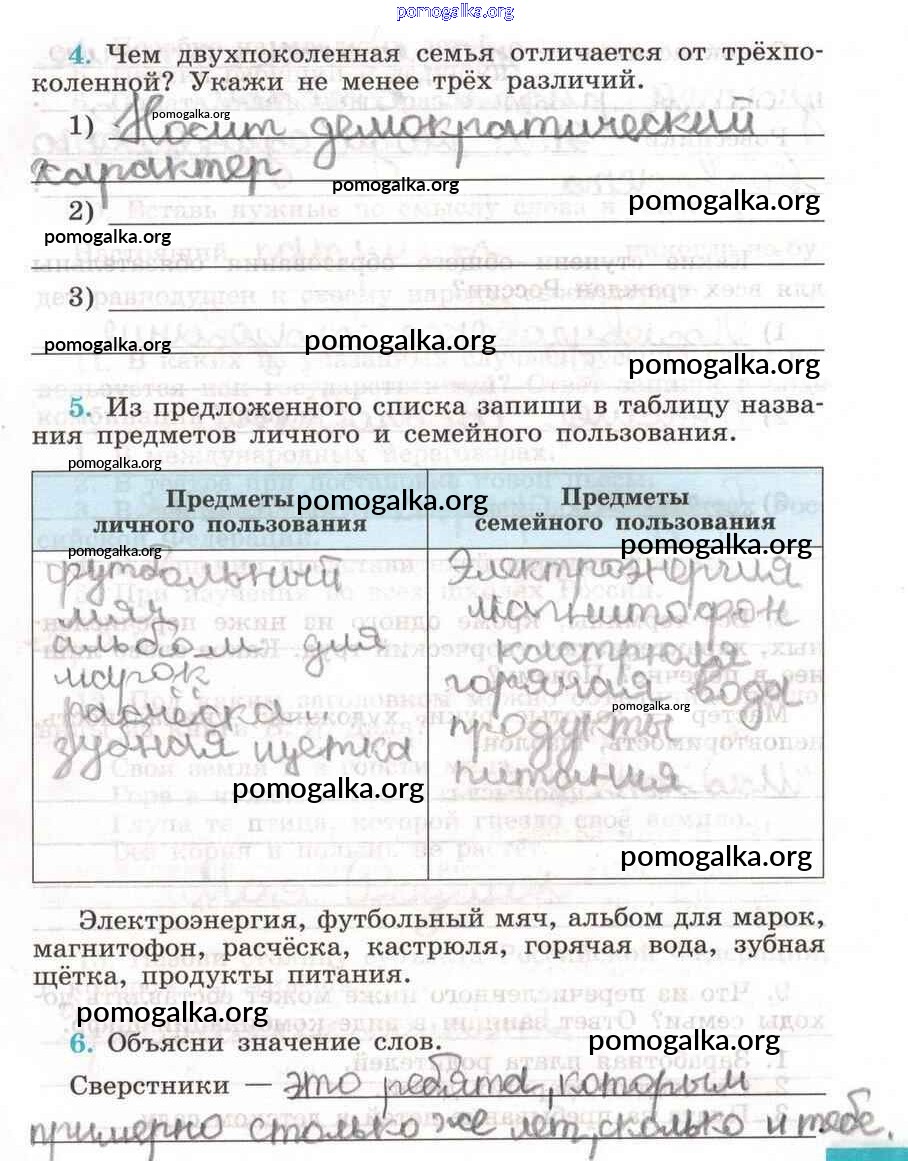 pomogalka.org
4. Чем двухпоколенная семья отличается от трёхпо-
коленной? Укажи не менее трёх различий.
pomogalka.org
1) Носит демократический
характер
pomogalka.org
pomogalka.org
2)
pomogalka.org
3)
pomogalka.org
pomogalka.org
pomogalka.org
5. Из предложенного списка запиши в таблицу назва-
ния предметов личного и семейного пользования.
pomogalka.org
Предметы
личного пользования
pomogalka.org
Предметы
семейного пользования
pomogalka.org
pomogalka.org
футбольный
мяч
альбом для
марок
расчёска
зубная щетка
pomogalka.org
Электроэнергия
магнитофон
кастрюля
горячая вода
pomogalka.org
продукты
питания
pomogalka.org
Электроэнергия, футбольный мяч, альбом для марок,
магнитофон, расчёска, кастрюля, горячая вода, зубная
щётка, продукты питания.
pomogalka.org
pomogalka.org
6. Объясни значение слов.
Сверстники — это ребята, которым
примерно столько же лет, сколько и тебе.